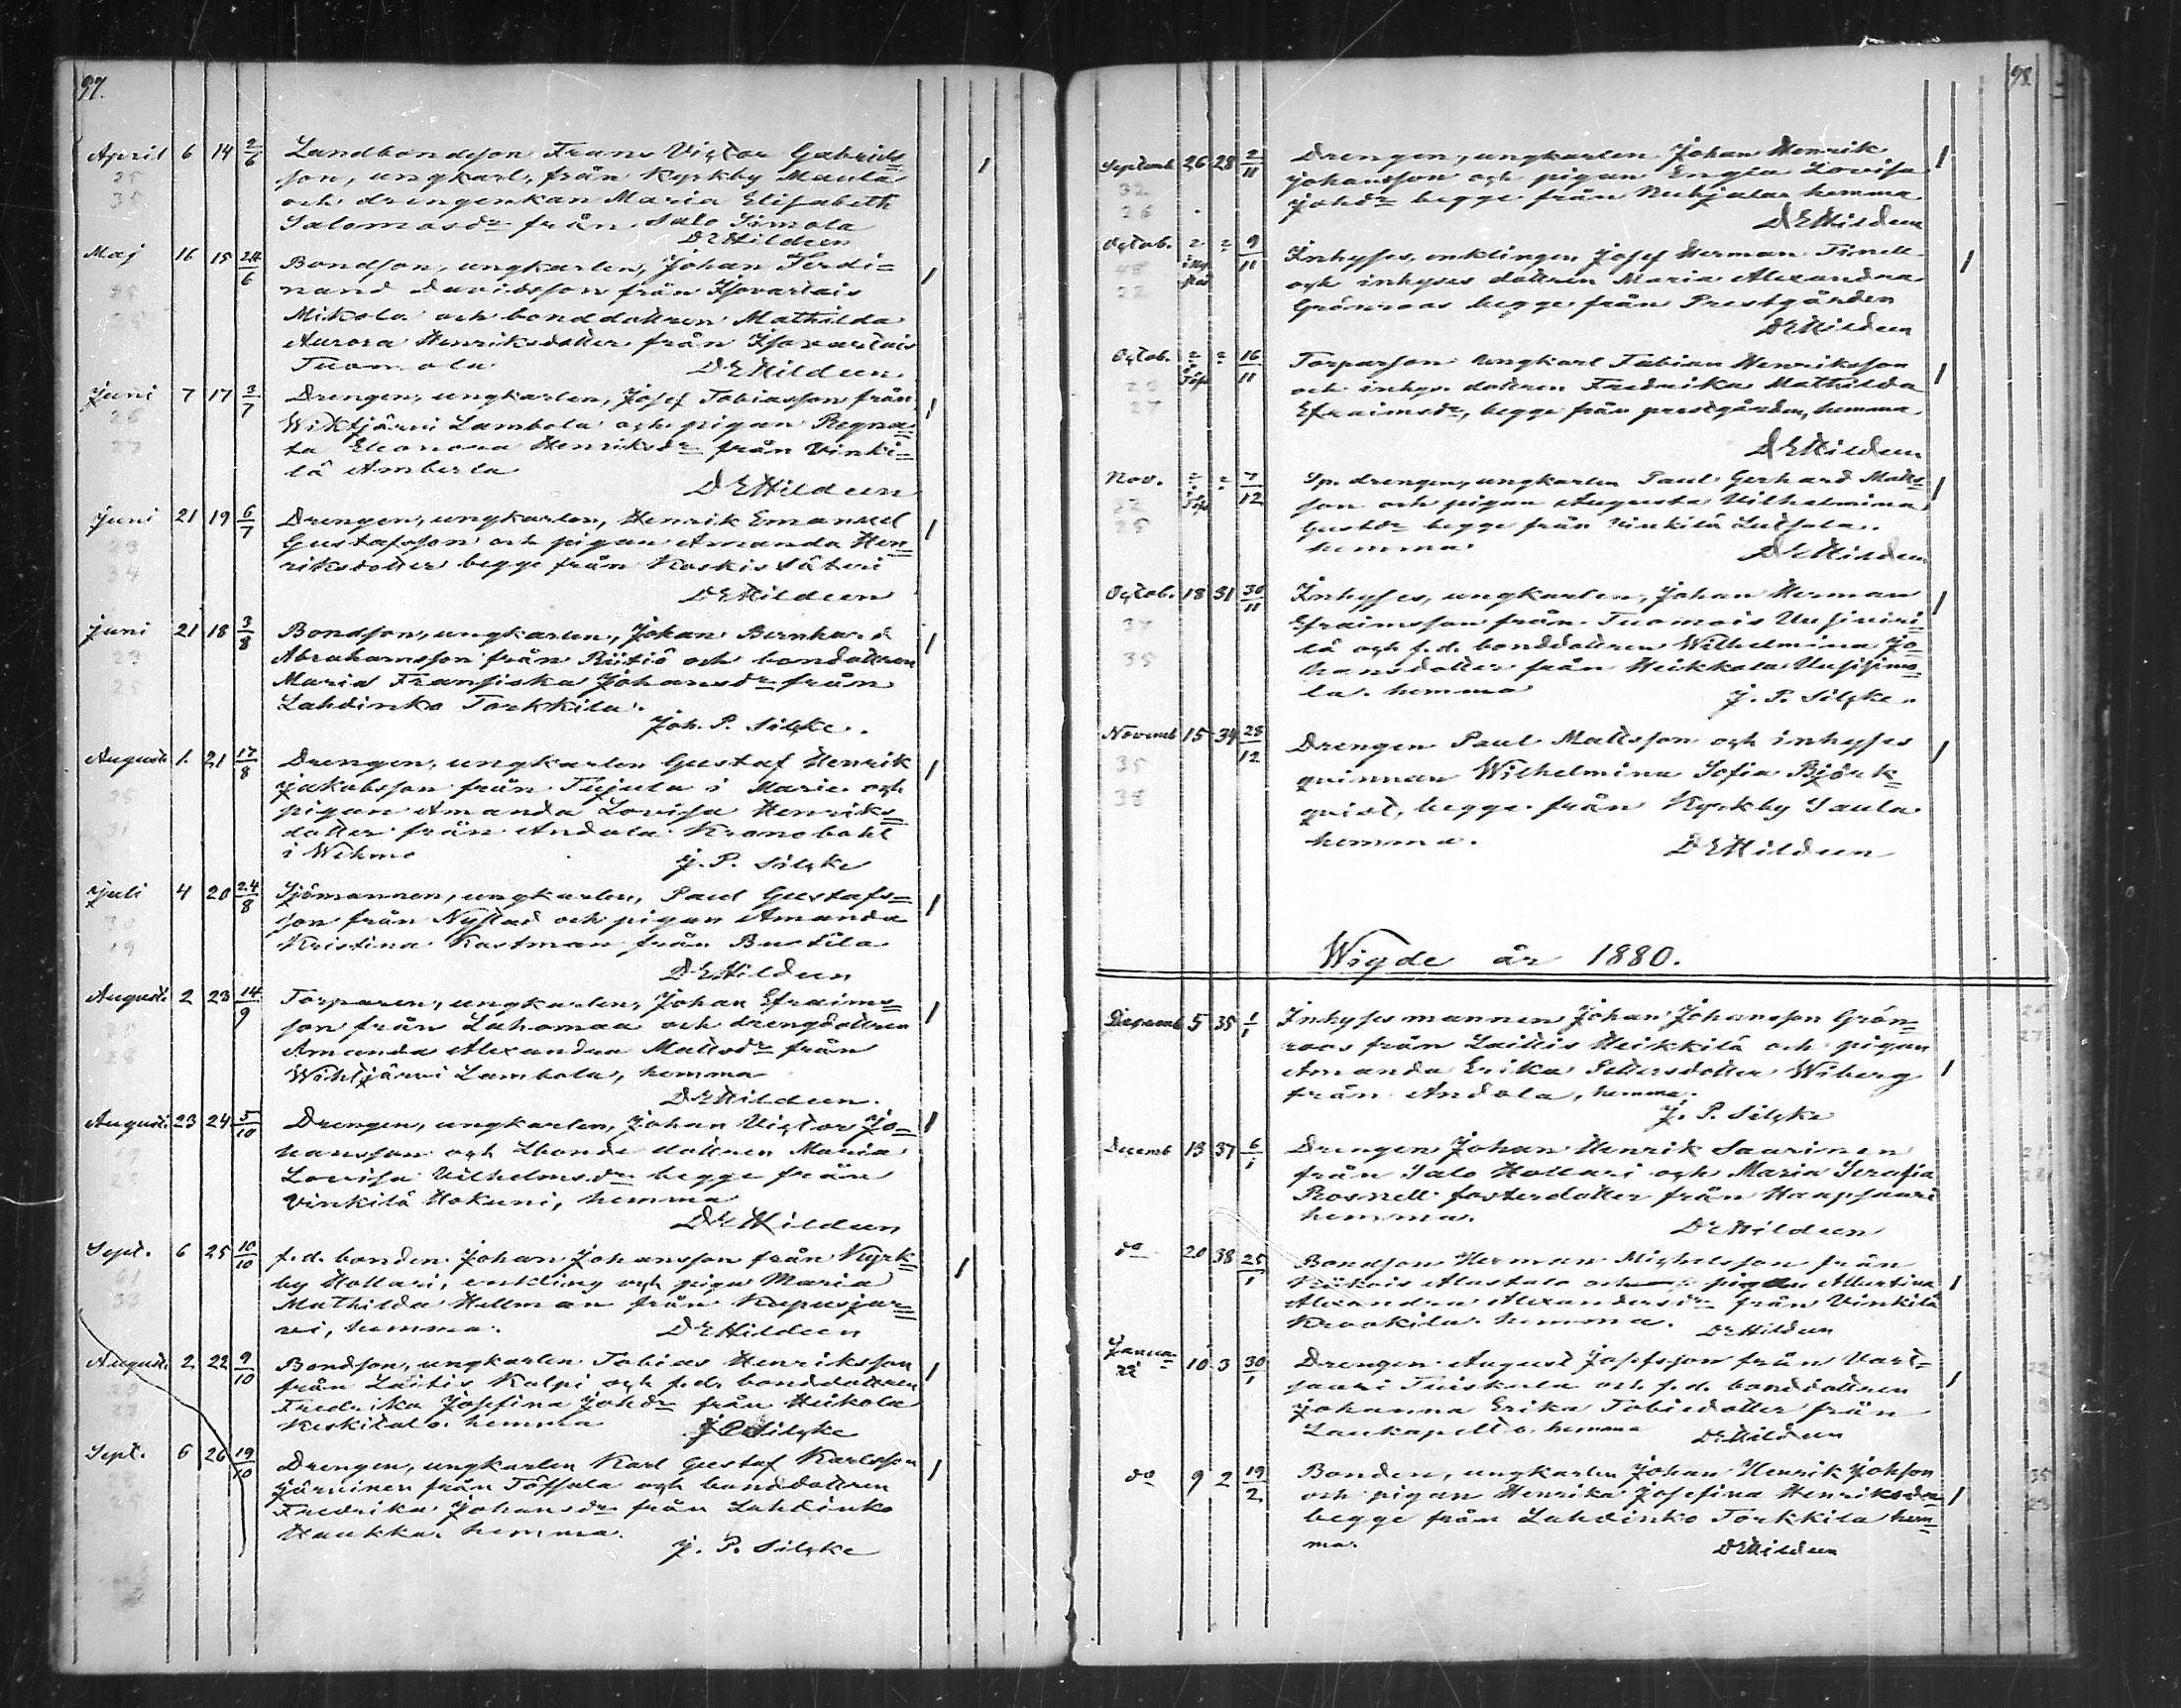 97.
April 6 14 2/6 Landbondsson Frans Victor Gabriels=
son, ungkarl, från Kyrkby Maula
och drengenkan Maria Elisabeth
Salomosdr från Salo Simola
DEHildeen
Maj 16 15 24/6 Bondsson, ungkarlen, Johan Ferdi=
nand Davidsson från Isovartais
Mikola och bonddottren Mathilda
Aurora Henriksdotter från Isovartais
Tuomola DEHildeen
Juni 7 17 3/7 Drengen, ungkarlen, Josef Tobiasson från
26 Wihtjärvi Lambola och pigan Regina=
27 ta Eleonora Henriksdr från Vinki=
lä Amberla
DEHildeen
Juni 21 19 6/7 Drengen, ungkarlen, Henrik Emanuel
23 Gustafsson och pigan Amanda Hen=
34 riksdotter begge från Koskis Säteri
DEHildeen
Juni 21 18 3/8 Bondson, ungkarlen, Johan Bernhard
23 Abrahamsson från Riitiö och bonddottren
25 Maria Fransiska Johansdr från
Lahdinko Torkkila.
Joh. P. Silcke.
Augusti 1. 21 17/8 Drengen, ungkarlen Gustaf Henrik
25 Jakobsson från Tujula i Marie och
31 pigan Amanda Lovisa Henriks=
dotter från Andola Kronobohl
i Wehmo J. P. Silcke
Juli 4 20 24/8 Sjömannen, ungkarlen, Paul Gustafs=
30 son från Nystad och pigan Amanda
19 Kristina Kastman från Bustila
DEHildeen
Augusti 2 23 14/9 Torparen, ungkarlen, Johan Efraims=
son från Lahomaa och drengdottren
28 Amanda Alexandra Mattsdr från
Wihtjärvi Lambola, hemma
DEHildeen.
Augusti 23 24 5/10 Drengen, ungkarlen, Johan Victor Jo=
hansson och Lbonde dottren Maria
25 Lovisa Vilhelmsdr begge från
Vinkilä Hokuni, hemma
DEHildeen
Sept. 6 25 10/10 f.d. bonden Johan Johansson från Kyrk=
61 by Hollari, enkling och piga Maria
33 Mathilda Hellman från Kapusjar=
vi, hemma. DEHildeen
Augusti 2 22 9/10 Bondson, ungkarlen Tobias Henriksson
20 från Laitis Kalpi och f.d. bonddottren
Fredrika Josefina Johdr från Heikola
Keskitalo. hemma JPSilcke
Sept. 6 26 19/10 Drengen, ungkarlen Karl Gustaf Karlsson
Järvinen från Töffala och bonddottren
25 Fredrika Johansdr från Lahdinko
Haukka. hemma.
J. P. Silcke
98
Septemb 26 28 2/11 Drengen, ungkarlen Johan Henrik
32 Johansson och pigan Engla Lovisa
26 Johdr begge från Nuhjala. hemma
DEHildeen
Octob. 9/11 Inhyses, enklingen Josef Herman Finell
48 och inhyses dottren Maria Alexandra
32 Grönroos begge från Prestgården
DEHildeen
Octob. 16/11 Torparson ungkarl Fabian Henriksson
och inhys. dottren Fredrika Mathilda
27 Efraimsdr, begge från prestgården, hemma
DEHildeen
Nov. 7/12 Sp. drengen, ungkarlen Paul Gerhard Matts=
son och pigan Augusta Vilhelmina
25 Gustdr begge från Vinkilä Luttala.
hemma. DEHildeen
Octob. 18 31 30/11 Inhyses, ungkarlen, Johan Herman
37 Efraimsson från Tuomois Uusiviri=
35 lä och f.d. bonddottren Wilhelmina Jo=
hansdotter från Heikkola Uusisimo=
la. hemma J. P. Silcke.
Novemb 15 34 28/12 Drengen Paul Mattsson och inhyses
35 qvinnan Wilhelmina Sofia Björk=
38 qvist, begge från Kyrkby Saula
hemma. DEHildeen
Wigde år 1880.
Decemb 5 35 1/1 Inhyses mannen Johan Johansson Grön=
roos från Laitis Heikkilä och pigan 27
Amanda Erika Pettersdotter Wiberg
från Andola, hemma.
J. P. Silcke
Decemb 13 37 6/1 Drengen Johan Henrik Saarinen
från Salo Hollari och Maria Serafia
Rosnell fosterdotter från Haapsaari
hemma. DEHildeen
do 20 38 25/1 Bondson Herman Michelsson från
Alastalo och pigan Albertina
Alexandra Alexandersdr från Vinkilä
Krookila. hemma. DEHildeen
Janua=
ri 10 3 30/1 Drengen August Josefsson från Vart=
saari Tuiskula och f.d. bonddottren
Johanna Erika Tobiedotter från
Laukapelto. hemma DEHildeen
do 9 2 19/2 Bonden, ungkarlen Johan Henrik Johsson 35
och pigan Henrika Josefina Henriksdr 23
begge från Lahdinko Torkkila hem=
ma. DEHildeen